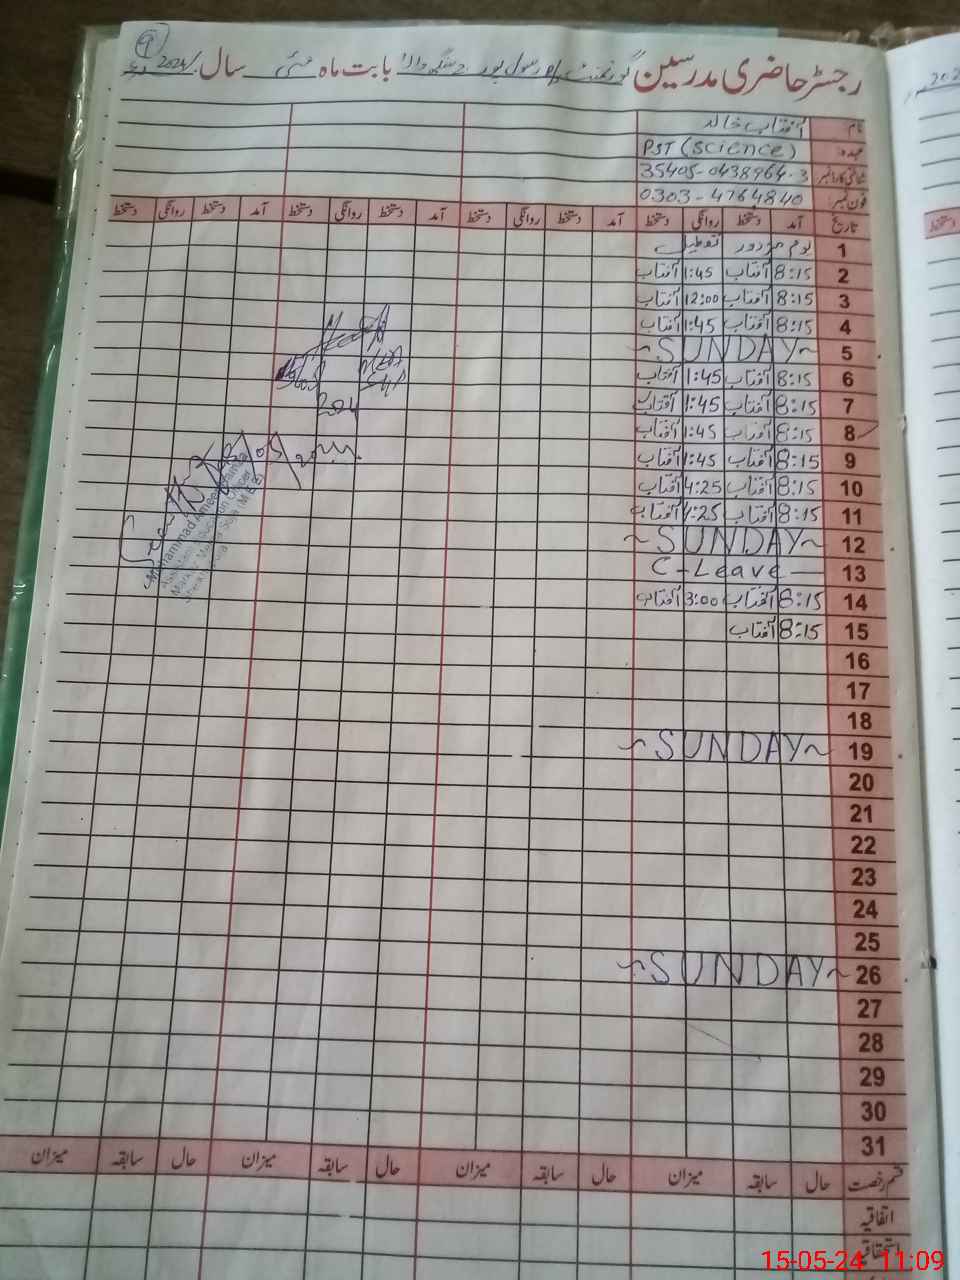 9
رجسٹر حاضری مدرسین گورنمنٹ رسول پور بابت ماہ مئی سال 2024ء
نام آفتاب خالد
عہدہ PST (Science)
شناختی کارڈ نمبر 35405-0438964-3
فون نمبر 0303-4764840
تاریخ آمد دستخط روانگی دستخط آمد دستخط روانگی دستخط آمد دستخط روانگی دستخط آمد دستخط روانگی دستخط
1 یوم مزدور تعطیل
2 8:15 آفتاب 1:45 آفتاب
3 8:15 آفتاب 12:00 آفتاب
4 8:15 آفتاب 1:45 آفتاب
5 ~SUNDAY~
6 8:15 آفتاب 1:45 آفتاب
7 8:15 آفتاب 1:45 آفتاب
8 8:15 آفتاب 1:45 آفتاب
9 8:15 آفتاب 1:45 آفتاب
10 8:15 آفتاب 4:25 آفتاب
11 8:15 آفتاب 4:25 آفتاب
12 ~SUNDAY~
13 C-Leave
14 8:15 آفتاب 3:00 آفتاب
15 8:15 آفتاب
16
17
18
19 ~SUNDAY~
20
21
22
23
24
25
26 ~SUNDAY~
27
28
29
30
31
Muhammad Ameer Hamza
Assistant Education Officer
قسم رخصت حال سابقہ میزان حال سابقہ میزان حال سابقہ میزان حال سابقہ میزان
اتفاقیہ
استحقاقی
دستخط
15-05-24 11:09